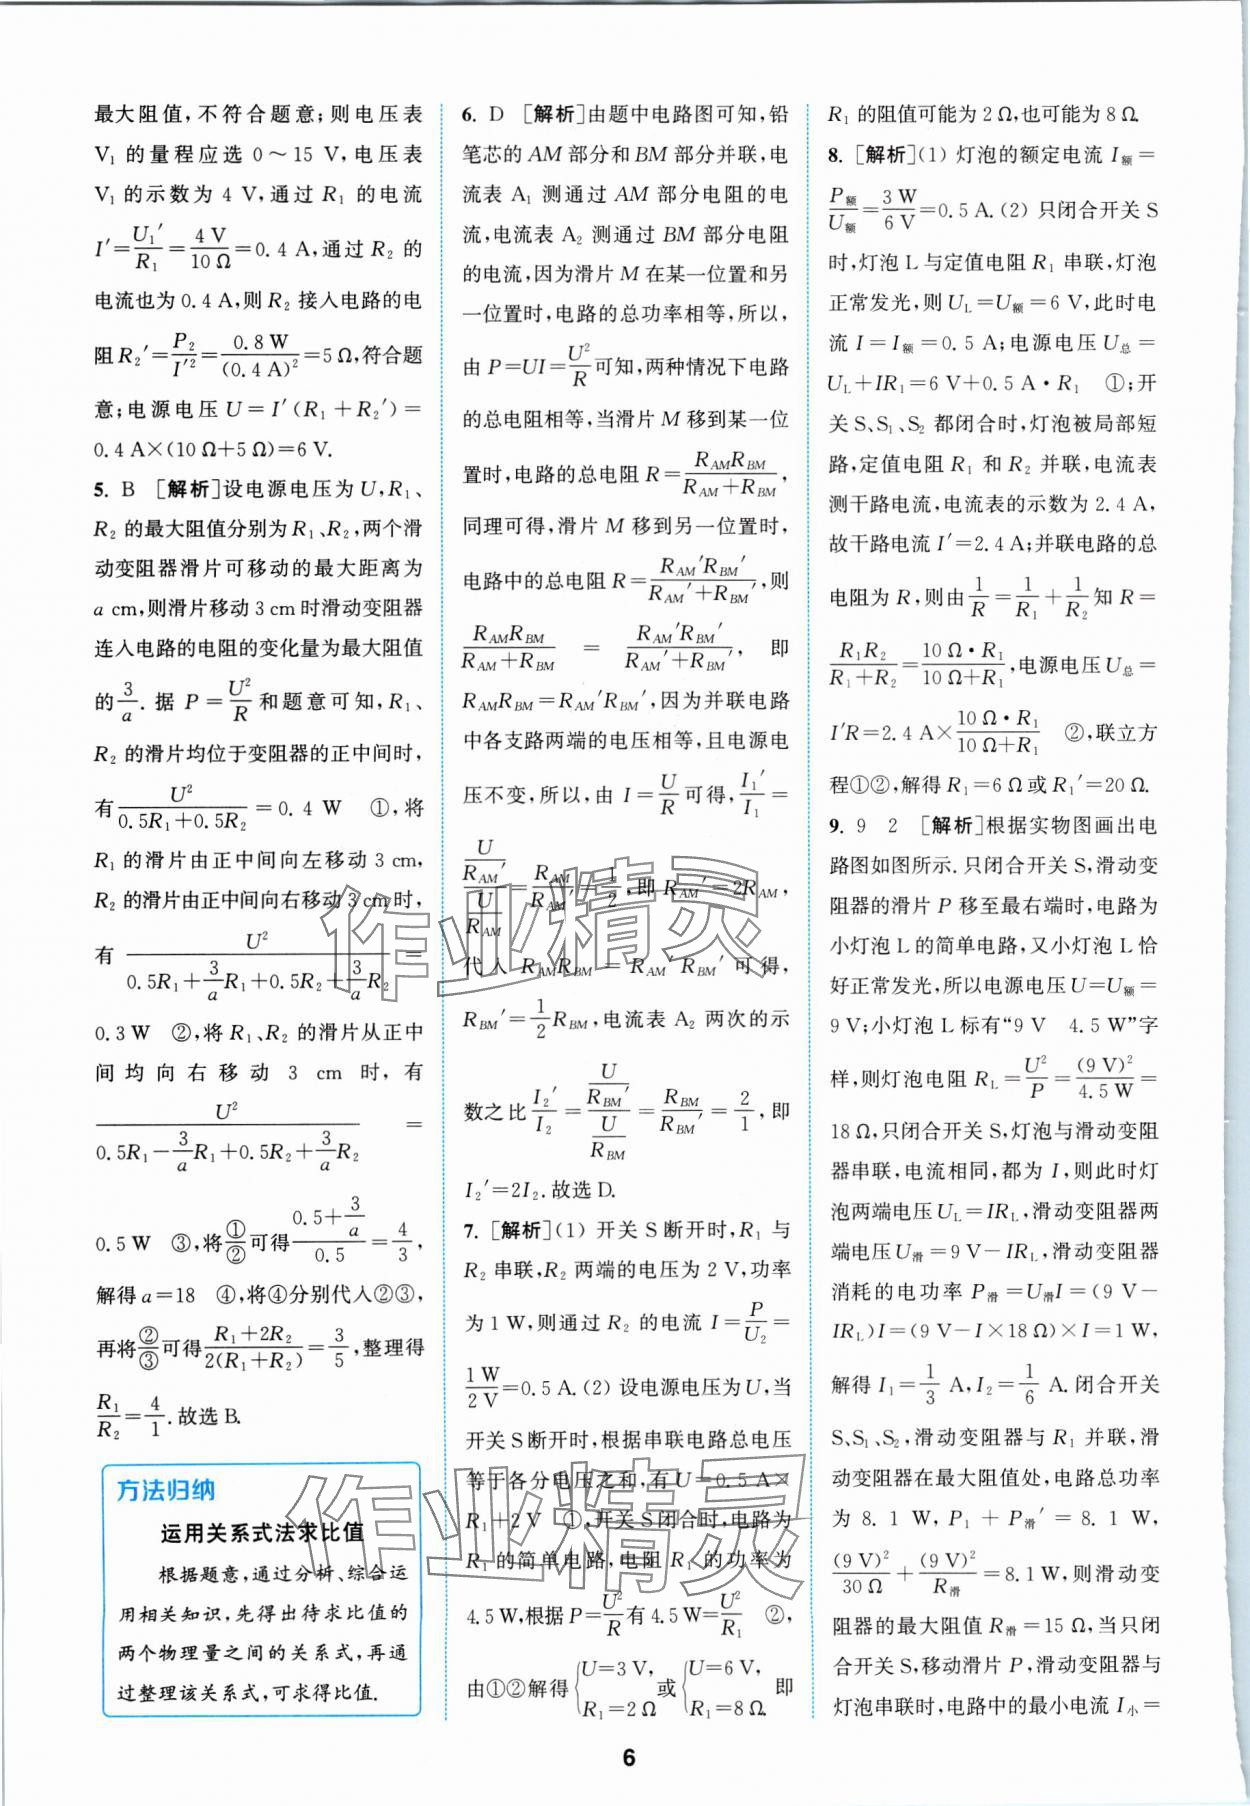 最大阻值,不符合题意;则电压表
V₁ 的量程应选 0～15 V,电压表
V₁ 的示数为 4 V,通过 R₁ 的电流
I′=U₁′/R₁=4 V/10 Ω=0.4 A,通过 R₂ 的
电流也为 0.4 A,则 R₂ 接入电路的电
阻 R₂′=P₂/I′²=0.8 W/(0.4 A)²=5 Ω,符合题
意;电源电压 U=I′(R₁+R₂′)=
0.4 A×(10 Ω+5 Ω)=6 V.
5. B [解析]设电源电压为 U,R₁、
R₂ 的最大阻值分别为 R₁、R₂,两个滑
动变阻器滑片可移动的最大距离为
a cm,则滑片移动 3 cm 时滑动变阻器
连入电路的电阻的变化量为最大阻值
的 3/a. 据 P=U²/R 和题意可知,R₁、
R₂ 的滑片均位于变阻器的正中间时,
有 U²/(0.5R₁+0.5R₂)=0.4 W ①,将
R₁ 的滑片由正中间向左移动 3 cm,
R₂ 的滑片由正中间向右移动 3 cm 时,
有 U²/(0.5R₁+(3/a)R₁+0.5R₂+(3/a)R₂)=
0.3 W ②,将 R₁、R₂ 的滑片从正中
间均向右移动 3 cm 时,有
U²/(0.5R₁-(3/a)R₁+0.5R₂+(3/a)R₂)=
0.5 W ③,将①/②可得(0.5+3/a)/0.5=4/3,
解得 a=18 ④,将④分别代入②③,
再将②/③可得(R₁+2R₂)/(2(R₁+R₂))=3/5,整理得
R₁/R₂=4/1.故选 B.
方法归纳
运用关系式法求比值
根据题意,通过分析、综合运
用相关知识,先得出待求比值的
两个物理量之间的关系式,再通
过整理该关系式,可求得比值.
6. D [解析]由题中电路图可知,铅
笔芯的 AM 部分和 BM 部分并联,电
流表 A₁ 测通过 AM 部分电阻的电
流,电流表 A₂ 测通过 BM 部分电阻
的电流,因为滑片 M 在某一位置和另
一位置时,电路的总功率相等,所以,
由 P=UI=U²/R 可知,两种情况下电路
的总电阻相等,当滑片 M 移到某一位
置时,电路的总电阻 R=R_AM R_BM/(R_AM+R_BM),
同理可得,滑片 M 移到另一位置时,
电路中的总电阻 R=R_AM′R_BM′/(R_AM′+R_BM′),则
R_AM R_BM/(R_AM+R_BM) = R_AM′R_BM′/(R_AM′+R_BM′), 即
R_AM R_BM=R_AM′R_BM′,因为并联电路
中各支路两端的电压相等,且电源电
压不变,所以,由 I=U/R 可得,I₁′/I₁=
(U/R_AM′)/(U/R_AM)=R_AM/R_AM′=1/2,即 R_AM′=2R_AM,
代入 R_AM R_BM = R_AM′R_BM′ 可得,
R_BM′=1/2 R_BM,电流表 A₂ 两次的示
数之比 I₂′/I₂=(U/R_BM′)/(U/R_BM)=R_BM/R_BM′=2/1,即
I₂′=2I₂.故选 D.
7. [解析](1) 开关 S 断开时,R₁ 与
R₂ 串联,R₂ 两端的电压为 2 V,功率
为 1 W,则通过 R₂ 的电流 I=P/U₂=
1 W/2 V=0.5 A.(2) 设电源电压为 U,当
开关 S 断开时,根据串联电路总电压
等于各分电压之和,有 U=0.5 A×
R₁+2 V ①,当开关 S 闭合时,电路为
R₁ 的简单电路,电阻 R₁ 的功率为
4.5 W,根据 P=U²/R 有 4.5 W=U²/R₁ ②,
由①②解得{U=3 V, R₁=2 Ω 或{U=6 V, R₁=8 Ω. 即
R₁ 的阻值可能为 2 Ω,也可能为 8 Ω.
8. [解析](1) 灯泡的额定电流 I额=
P额/U额=3 W/6 V=0.5 A.(2) 只闭合开关 S
时,灯泡 L 与定值电阻 R₁ 串联,灯泡
正常发光,则 U_L=U额=6 V,此时电
流 I=I额=0.5 A;电源电压 U总=
U_L+IR₁=6 V+0.5 A·R₁ ①;开
关 S、S₁、S₂ 都闭合时,灯泡被局部短
路,定值电阻 R₁ 和 R₂ 并联,电流表
测干路电流,电流表的示数为 2.4 A,
故干路电流 I′=2.4 A;并联电路的总
电阻为 R,则由 1/R=1/R₁+1/R₂ 知 R=
R₁R₂/(R₁+R₂)=10 Ω·R₁/(10 Ω+R₁),电源电压 U总=
I′R=2.4 A×10 Ω·R₁/(10 Ω+R₁) ②,联立方
程①②,解得 R₁=6 Ω 或 R₁′=20 Ω.
9. 9 2 [解析]根据实物图画出电
路图如图所示.只闭合开关 S,滑动变
阻器的滑片 P 移至最右端时,电路为
小灯泡 L 的简单电路,又小灯泡 L 恰
好正常发光,所以电源电压 U=U额=
9 V;小灯泡 L 标有“9 V 4.5 W”字
样,则灯泡电阻 R_L=U²/P=(9 V)²/4.5 W=
18 Ω,只闭合开关 S,灯泡与滑动变阻
器串联,电流相同,都为 I,则此时灯
泡两端电压 U_L=IR_L,滑动变阻器两
端电压 U滑=9 V-IR_L,滑动变阻器
消耗的电功率 P滑=U滑I=(9 V-
IR_L)I=(9 V-I×18 Ω)×I=1 W,
解得 I₁=1/3 A,I₂=1/6 A.闭合开关
S、S₁、S₂,滑动变阻器与 R₁ 并联,滑
动变阻器在最大阻值处,电路总功率
为 8.1 W,P₁+P滑′=8.1 W,
(9 V)²/30 Ω+(9 V)²/R滑=8.1 W,则滑动变
阻器的最大阻值 R滑=15 Ω,当只闭
合开关 S,移动滑片 P,滑动变阻器与
灯泡串联时,电路中的最小电流 I小=
6
作业精灵
作业精灵